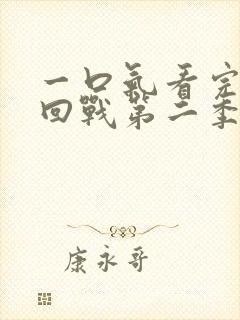 一口氣看完
回戰第二季
康永哥